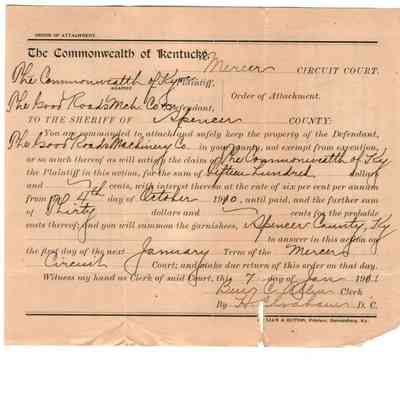 ORDER OF ATTACHMENT.
The Commonwealth of Kentucky.
Mercer CIRCUIT COURT.
The Commonwealth of Ky Plaintiff,
AGAINST
Order of Attachment.
The Good Roads Mch. Co Defendant,
TO THE SHERIFF OF Spencer COUNTY:
You are commanded to attach and safely keep the property of the Defendant,
The Good Roads Machinery Co. in your county, not exempt from execution,
or so much thereof as will satisfy the claim of The Commonwealth of Ky
the Plaintiff in this action, for the sum of Fifteen Hundred dollars
and cents, with interest thereon at the rate of six per cent per annum
from the 4th day of October 1910, until paid, and the further sum
of Thirty dollars and cents for the probable
costs thereof; and you will summon the garnishees, Spencer County, Ky
to answer in this action on
the first day of the next January Term of the Mercer
Circuit Court; and make due return of this order on that day.
Witness my hand as Clerk of said Court, this 7 day of Jan 1911
Clerk
By D. C.
& SUTTON, Printers, Harrodsburg, Ky.